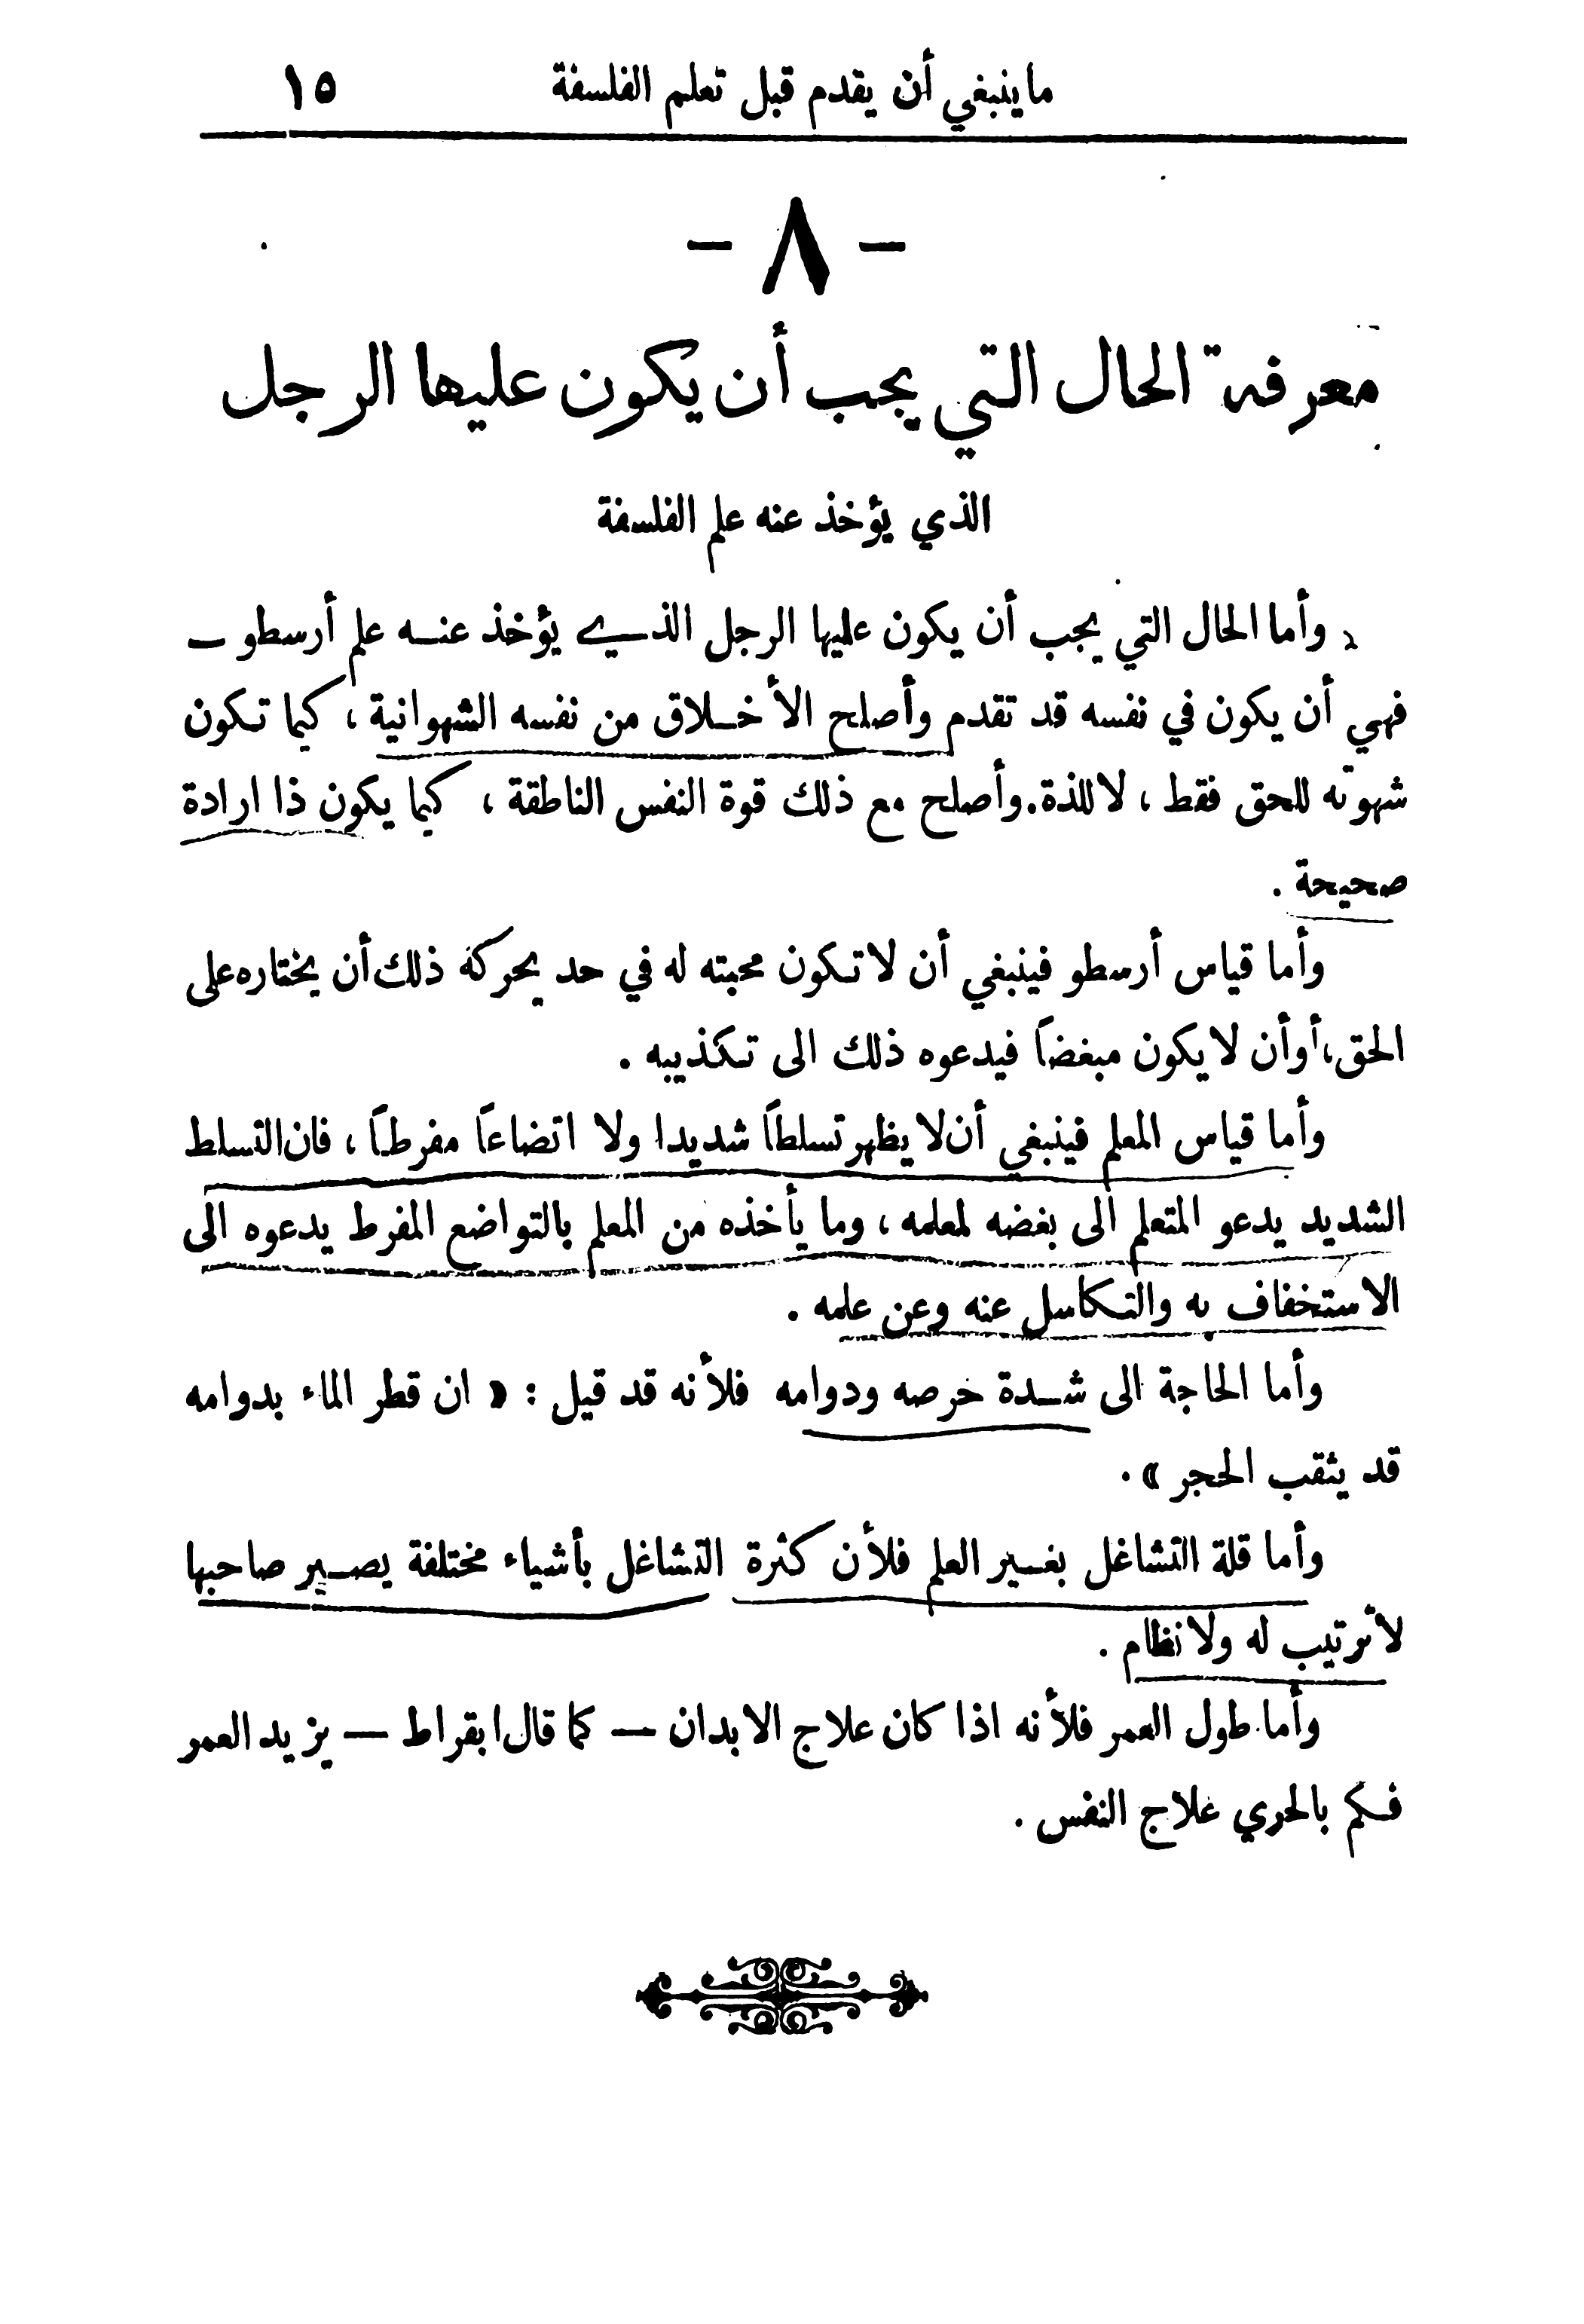 ماينبغي أن يقدم قبل تعلم الفلسفة ١٥
- ٨ -
معرفة الحال التي يجب أن يكون عليها الرجل
الذي يؤخذ عنه علم الفلسفة
وأما الحال التي يجب أن يكون عليها الرجل الذي يؤخذ عنه علم أرسطو –
فهي أن يكون في نفسه قد تقدم وأصلح الأخلاق من نفسه الشهوانية ، كيما تكون
شهوته للحق فقط ، لا للذة. وأصلح مع ذلك قوة النفس الناطقة ، كيما يكون ذا ارادة
صحيحة .
وأما قياس أرسطو فينبغي أن لا تكون محبته له في حد يحركه ذلك أن يختاره على
الحق ، أو أن لا يكون مبغضاً فيدعوه ذلك الى تكذيبه .
وأما قياس المعلم فينبغي أن لا يظهر تسلطاً شديدا ولا اتضاعاً مفرطاً ، فان التسلط
الشديد يدعو المتعلم الى بغضه لمعلمه ، وما يأخذه من المعلم بالتواضع المفرط يدعوه الى
الاستخفاف به والتكاسل عنه وعن علمه .
وأما الحاجة الى شدة حرصه ودوامه فلأنه قد قيل : « ان قطر الماء بدوامه
قد يثقب الحجر » .
وأما قلة التشاغل بغير العلم فلأن كثرة التشاغل بأشياء مختلفة يصير صاحبها
لا ترتيب له ولا نظام .
وأما طول العمر فلأنه اذا كان علاج الابدان — كما قال ابقراط — يزيد العمر
فكم بالحري علاج النفس .